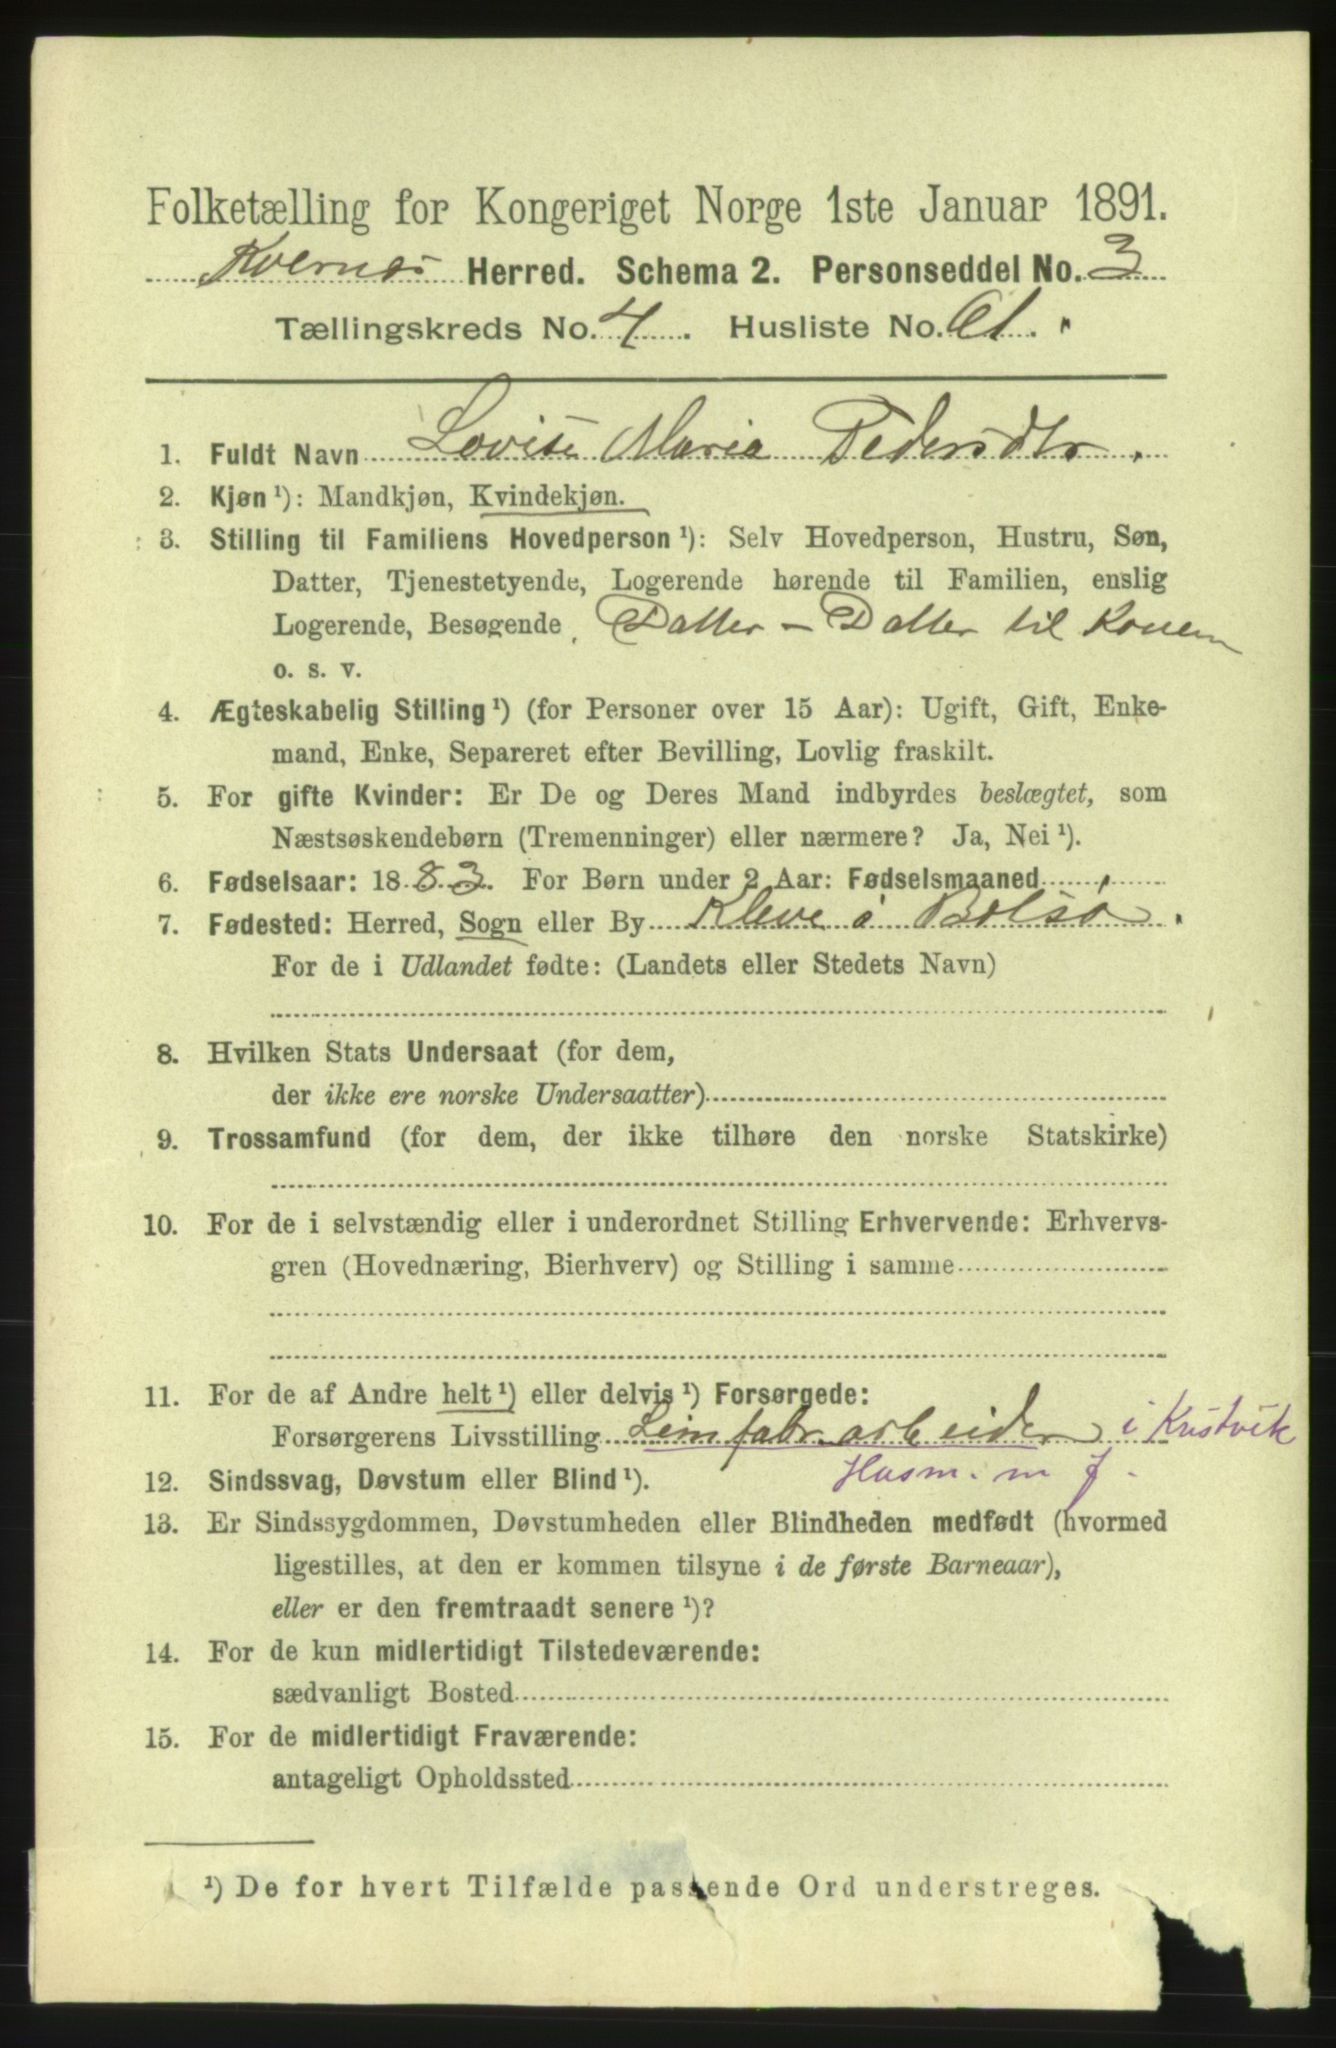 Folketælling for Kongeriget Norge 1ste Januar 1891.
Kvernes Herred. Schema 2. Personseddel No. 3
Tællingskreds No. 4. Husliste No. 61.
1. Fuldt Navn Lovise Maria Pedersdtr.
2. Kjøn ¹): Mandkjøn, Kvindekjøn.
3. Stilling til Familiens Hovedperson ¹): Selv Hovedperson, Hustru, Søn,
Datter, Tjenestetyende, Logerende hørende til Familien, enslig
Logerende, Besøgende Datter – Datter til Konen
o. s. v.
4. Ægteskabelig Stilling ¹) (for Personer over 15 Aar): Ugift, Gift, Enke-
mand, Enke, Separeret efter Bevilling, Lovlig fraskilt.
5. For gifte Kvinder: Er De og Deres Mand indbyrdes beslægtet, som
Næstsøskendebørn (Tremenninger) eller nærmere? Ja, Nei ¹).
6. Fødselsaar: 1883. For Børn under 2 Aar: Fødselsmaaned
7. Fødested: Herred, Sogn eller By Kleve i Bolsø.
For de i Udlandet fødte: (Landets eller Stedets Navn)
8. Hvilken Stats Undersaat (for dem,
der ikke ere norske Undersaatter)
9. Trossamfund (for dem, der ikke tilhøre den norske Statskirke)
10. For de i selvstændig eller i underordnet Stilling Erhvervende: Erhvervs-
gren (Hovednæring, Bierhverv) og Stilling i samme
11. For de af Andre helt ¹) eller delvis ¹) Forsørgede:
Forsørgerens Livsstilling Limfabr. arbeider i Kristvik
Husm. m J.
12. Sindssvag, Døvstum eller Blind ¹).
13. Er Sindssygdommen, Døvstumheden eller Blindheden medfødt (hvormed
ligestilles, at den er kommen tilsyne i de første Barneaar),
eller er den fremtraadt senere ¹)?
14. For de kun midlertidigt Tilstedeværende:
sædvanligt Bosted
15. For de midlertidigt Fraværende:
antageligt Opholdssted
¹) De for hvert Tilfælde passende Ord understreges.